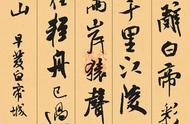 辭白帝彩
千里江陵
兩岸猿聲
住輕舟已過
山
早發白帝城